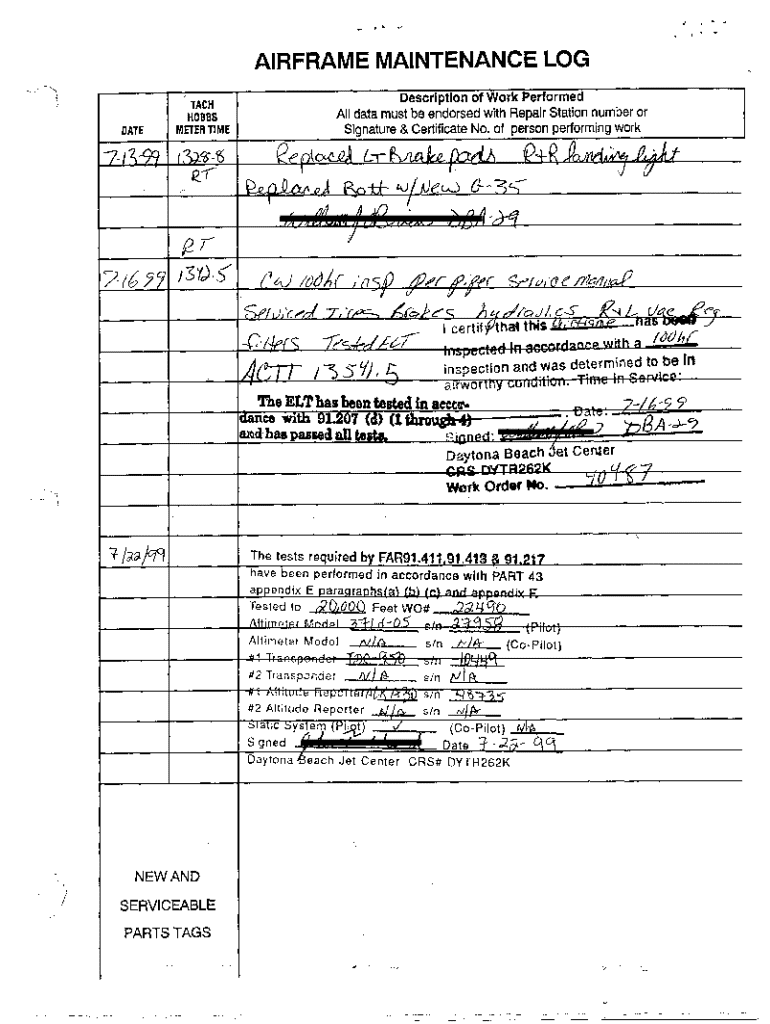 AIRFRAME MAINTENANCE LOG
DATE
TACH
HOBBS
METER TIME
Description of Work Performed
All data must be endorsed with Repair Station number or
Signature & Certificate No. of person performing work
7-13-99 1328.8 Replaced LT Brake pads R+R landing light
RT Replaced Batt w/New G-35
DBA-29
RT
7-16-99 1342.5 CW 100hr insp per piper service manual
Serviced Tires Brakes hydraulics R+L Vac Reg
I certify that this Airframe has been
filters Tested ELT
inspected in accordance with a 100hr
ACTT 1354.5
inspection and was determined to be in
airworthy condition. Time in Service:
The ELT has been tested in accor-
dance with 91.207 (d) (1 through 4)
and has passed all tests.
Date: 7-16-99
Signed: DBA-29
Daytona Beach Jet Center
CRS DYTR262K
Work Order No. 40487
7/22/99 The tests required by FAR91.411,91.413 & 91.217
have been performed in accordance with PART 43
appendix E paragraphs(a) (b) (c) and appendix F.
Tested to 20,000 Feet WO# 22490
Altimeter Model s/n 27958 (Pilot)
Altimeter Model N/A s/n N/A (Co-Pilot)
#1 Transponder s/n 10449
#2 Transponder N/A s/n N/A
#1 Altitude Reporter s/n
#2 Altitude Reporter N/A s/n N/A
Static System (Pilot) ✓ (Co-Pilot) N/A
Signed Date 7-22-99
Daytona Beach Jet Center CRS# DYTH262K
NEW AND
SERVICEABLE
PARTS TAGS